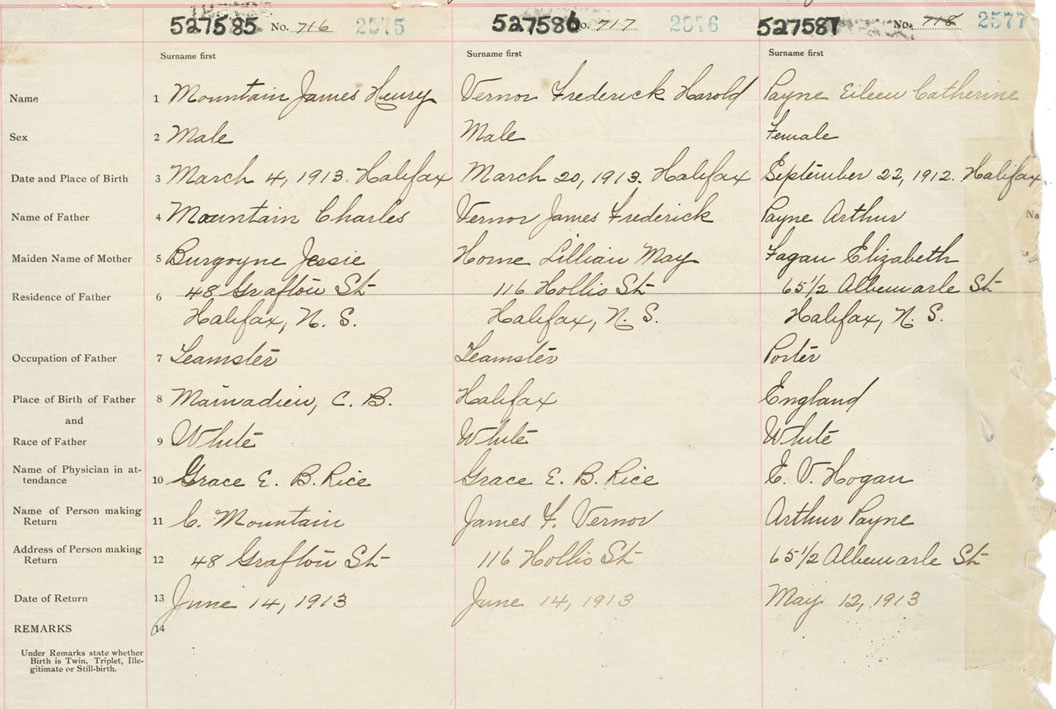 527585 No. 716 2575 527586 No. 717 2576 527587 No. 718 2577
Surname first Surname first Surname first
Name 1 Mountain James Henry Vernor Frederick Harold Payne Eileen Catherine
Sex 2 Male Male Female
Date and Place of Birth 3 March 4, 1913. Halifax March 20, 1913. Halifax September 22, 1912. Halifax
Name of Father 4 Mountain Charles Vernor James Frederick Payne Arthur
Na
Maiden Name of Mother 5 Burgoyne Jessie Horne Lillian May Fagan Elizabeth
Residence of Father 6 48 Grafton St 116 Hollis St 65 1/2 Albemarle St
Halifax, N. S. Halifax, N. S. Halifax, N. S.
Occupation of Father 7 Teamster Teamster Porter
Place of Birth of Father 8 Mainadieu, C. B. Halifax England
and
Race of Father 9 White White White
Name of Physician in at-
tendance 10 Grace E. B. Rice Grace E. B. Rice E. V. Hogan
Name of Person making
Return 11 C. Mountain James F. Vernor Arthur Payne
Address of Person making
Return 12 48 Grafton St 116 Hollis St 65 1/2 Albemarle St
Date of Return 13 June 14, 1913 June 14, 1913 May 12, 1913
REMARKS 14
Under Remarks state whether
Birth is Twin, Triplet, Ille-
gitimate or Still-birth.